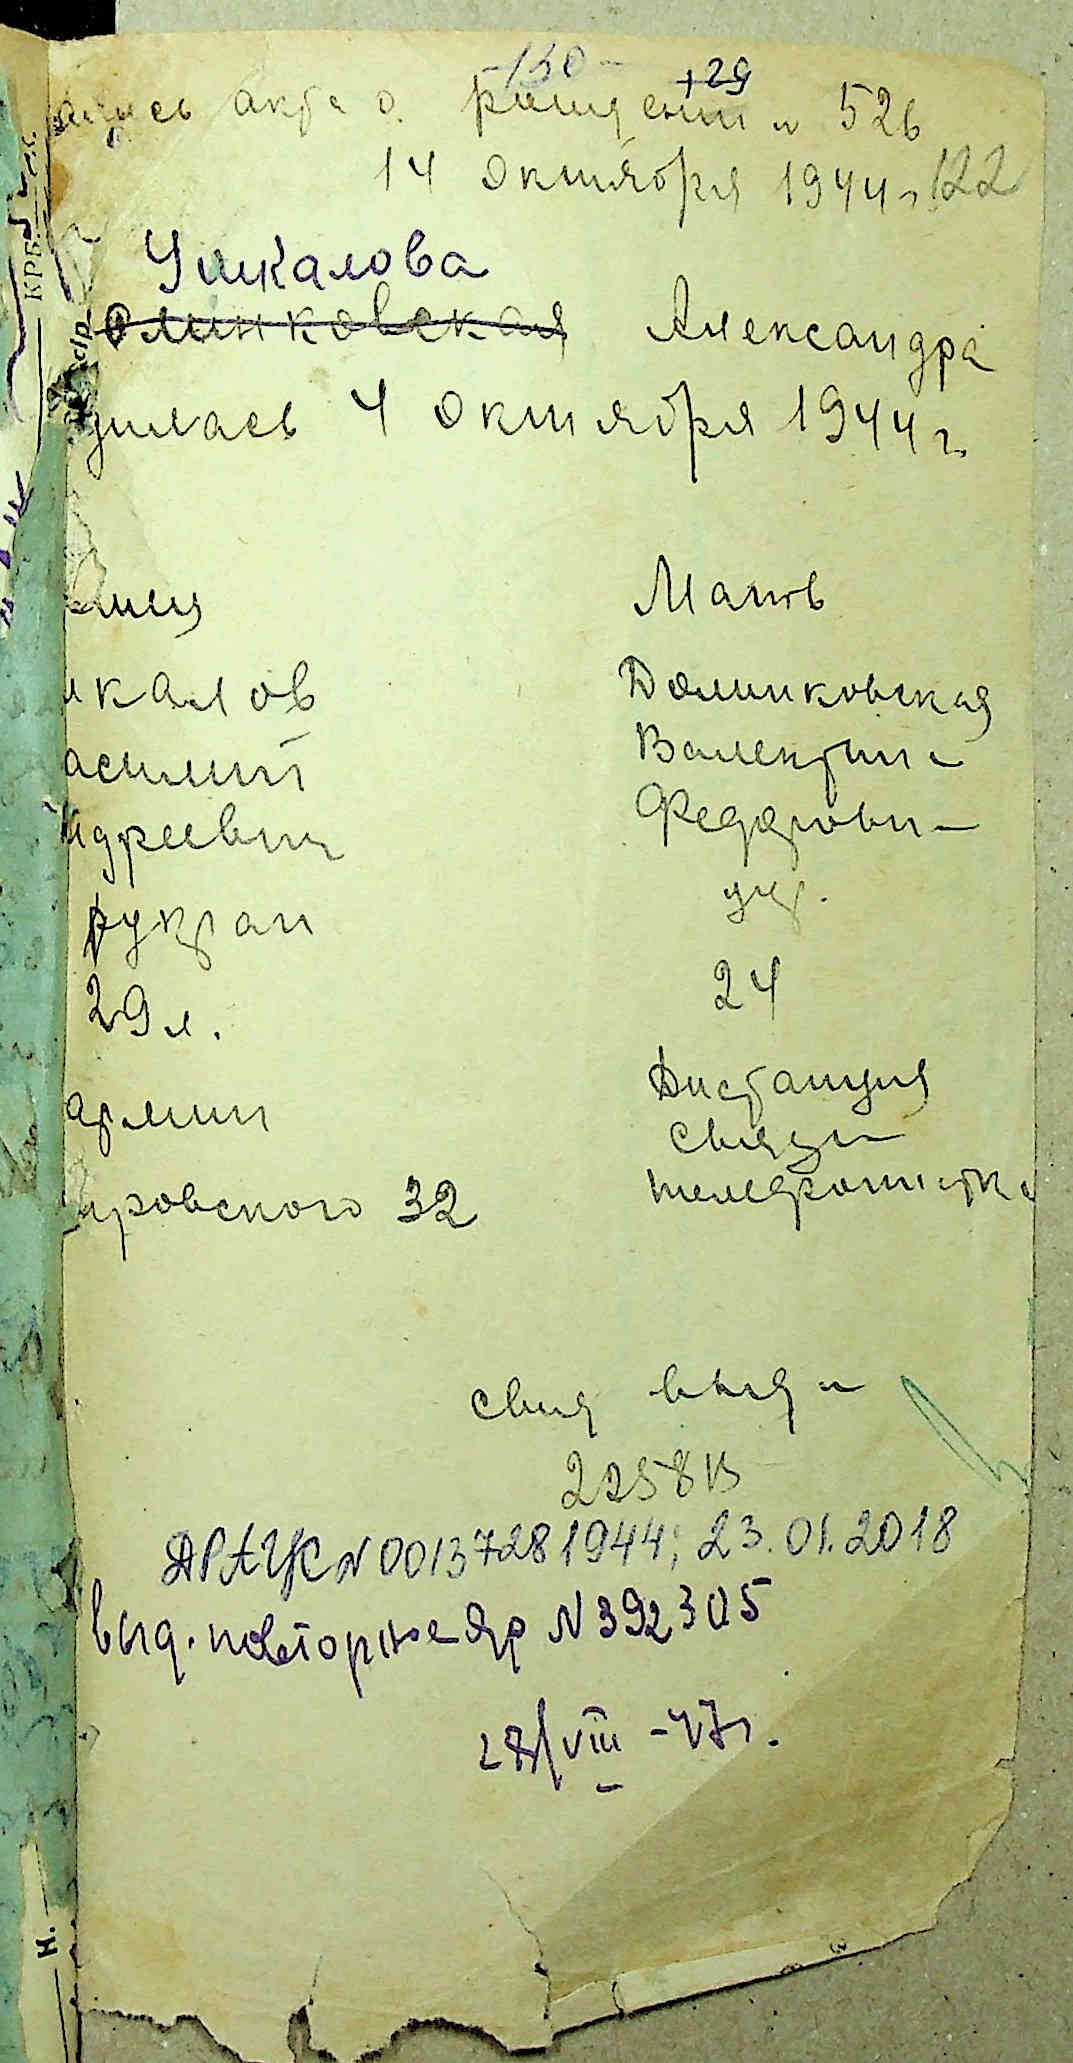 -130- 129
апись акта о рождении № 526
14 октября 1944 г. 122
Ушкалова
Олинковская Александра
дилась 4 октября 1944 г.
Мать
шкалов Долинковская
асилий Валентина
ндреевич Федоровн
укр.
29 л. 24
армии Дистанция
связи
ировского 32 телефонистка
свид выдан
2258
АРАГС № 00137281944; 23.01.2018
выд. повторное яр N 392305
28/VIII-47г.
КРБ.
н.